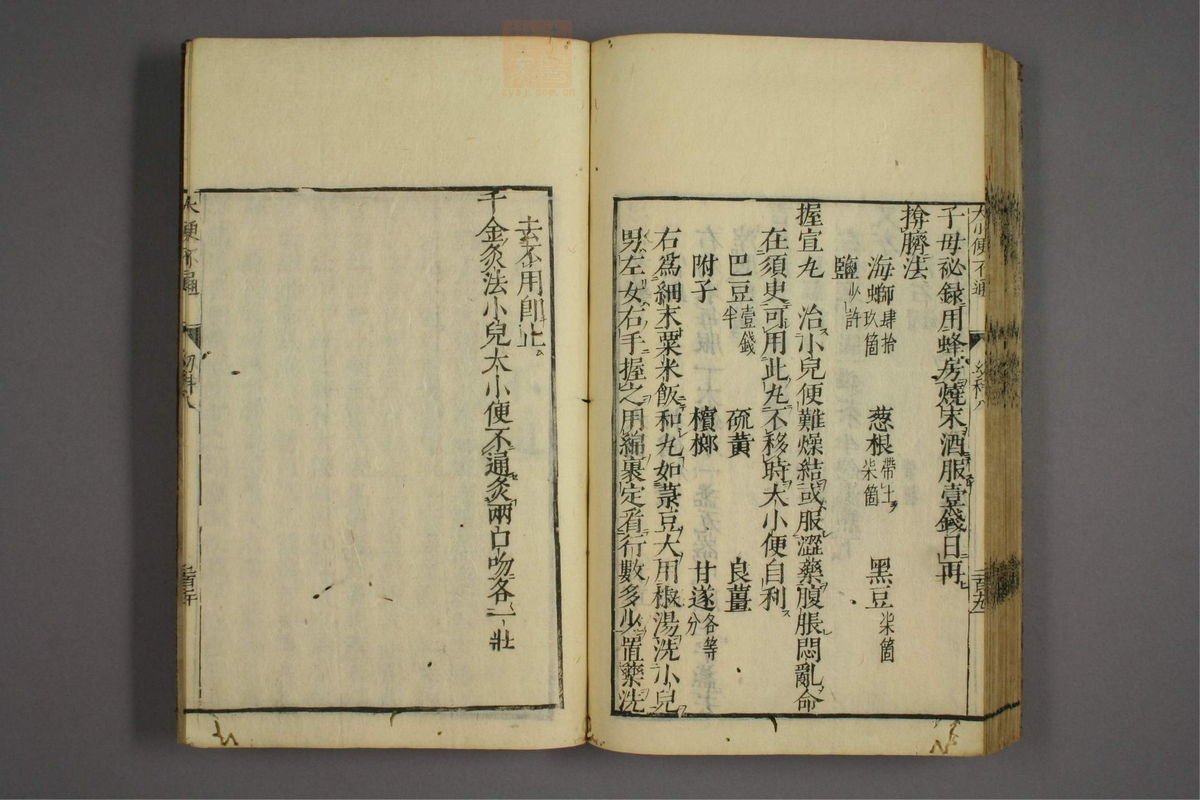 大小便不通
子母祕録用蜂房燒末酒服壹錢日再
揜臍法
海螄肆拾玖箇 葱根帶土柒箇 黑豆柒箇
鹽少許
握宣丸 治小兒便難燥結或服澀藥腹脹悶亂命
在須臾可用此丸不移時大小便自利
巴豆壹錢半 硫黄 良薑
附子 檳榔 甘遂各等分
右為細末粟米飯和丸如菉豆大用椒湯洗小兒
男左女右手握之用綿裹定看行數多少置藥洗
去不用即止
千金灸法小兒大小便不通灸兩口吻各一壯
大便不通